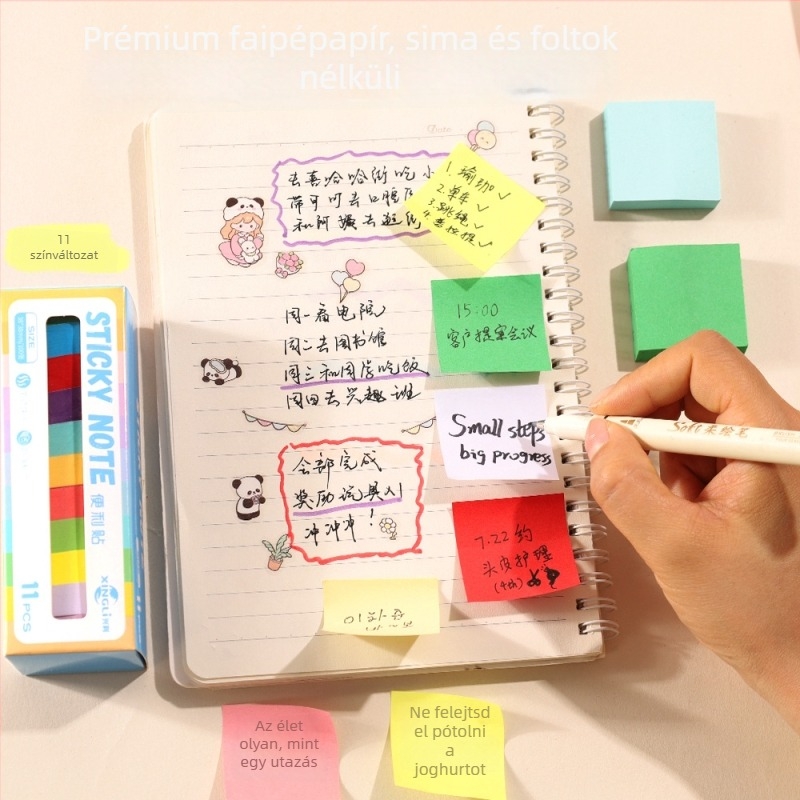 Prémium faipépapír, sima és foltok
nélküli
Date
去喜哈哈街吃小
带可可去口腔医
和阿
1.瑜珈✓
2.单车✓
3.跳绳✓
11
színváltozat
STICKY NOTE
便利贴
SIZE
XINGLI
11 PCS
周一看电影
周二去图书馆
周三和同房吃饭
周四去兴趣班
15:00
客户提案会议
Small steps
big progress
Soft 柔绘笔
全部完成
奖励玩具入
冲冲冲!
7.22 约
头皮护理
(4th)
Az élet
olyan, mint
egy utazás
Ne felejtsd
el pótolni
a
joghurtot